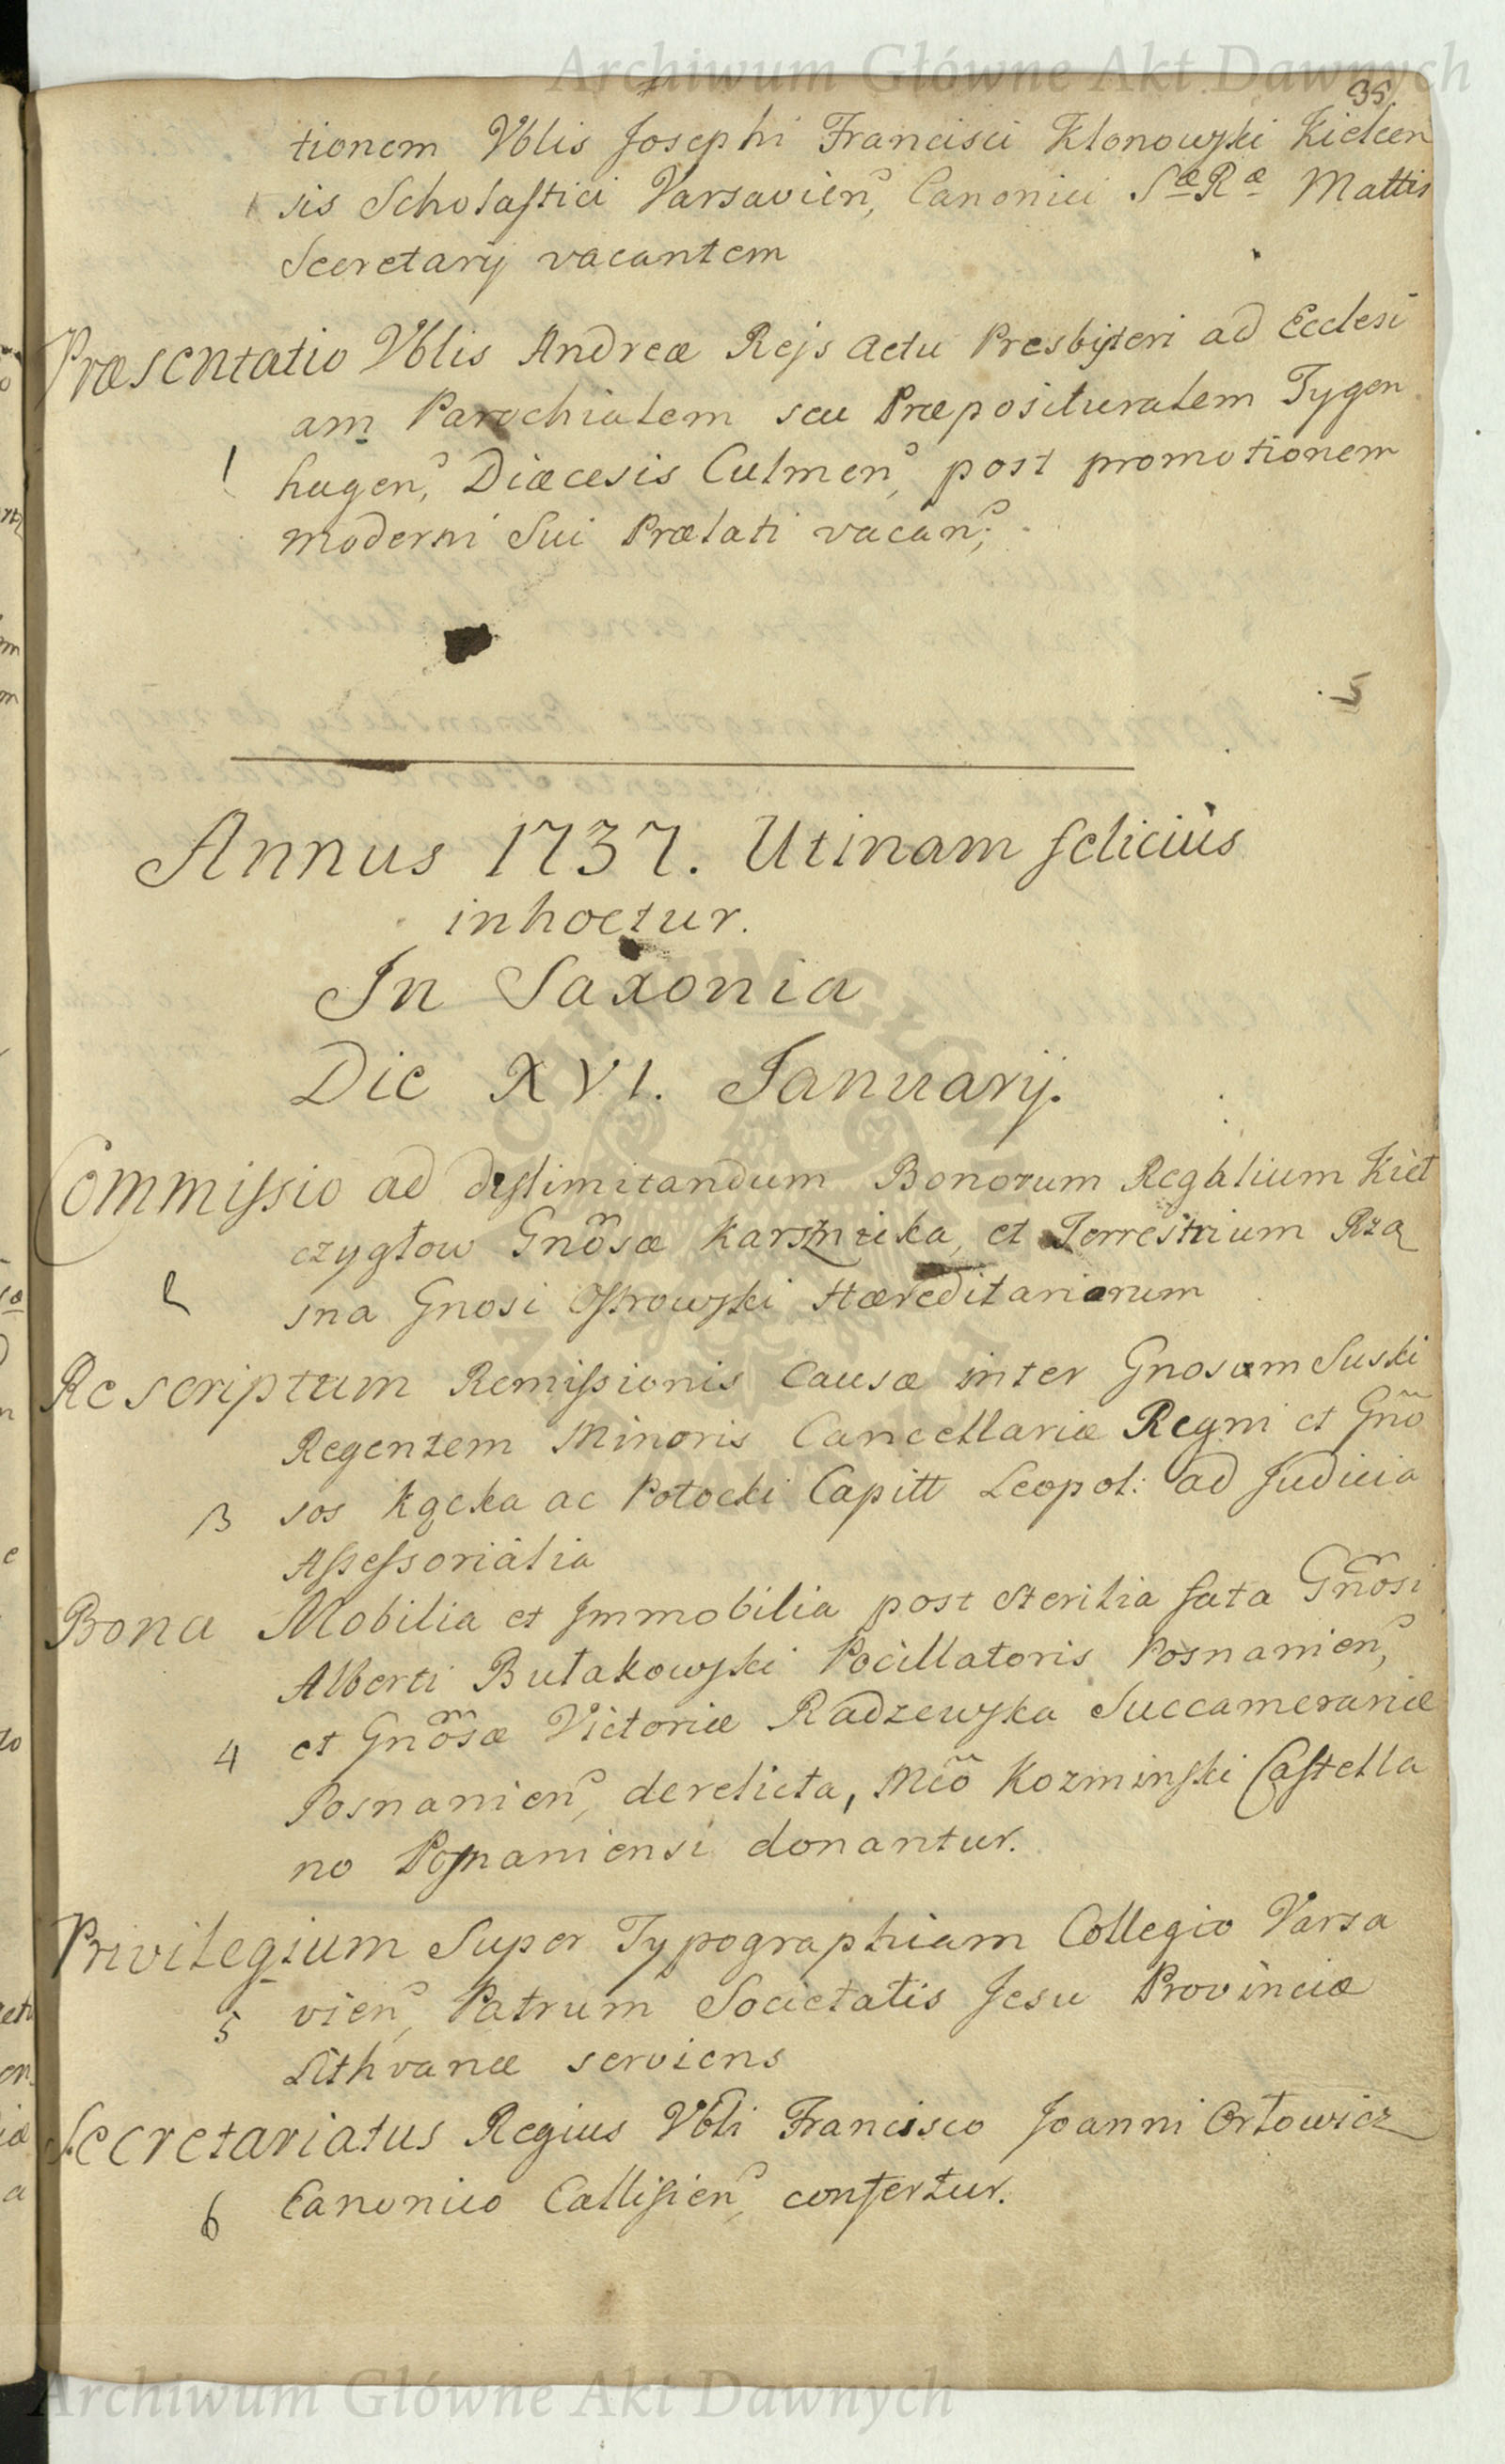 Archiwum Główne Akt Dawnych
35.
tionem Vblis Josephi Francisci Klonowski Kielcen
sis Scholastici Varsavien, Canonici Sæ Ræ Mattis
Secretarij vacantem
Præsentatio Vblis Andreæ Rejs actu Presbyteri ad Ecclesi
am Parochialem seu Præposituralem Tygen
1 hagen, Diæcesis Culmen, post promotionem
moderni Sui Prælati vacan;
Annus 1737. Utinam feliciùs
inhoetur.
In Saxonia
Die XVI. Januarij.
Commissio ad dislimitandum Bonorum Regalium Kieł
czygłow Gnõsæ Karsznicka, et Terrestrium Rzą
2 sna Gnosi Ostrowski Hæreditariorum
Rescriptum Remissionis Causæ inter Gnosum Suski
Regentem Minoris Cancellariæ Regni et Gnõ
3 sos Kącka ac Potocki Capitt Leopol: ad Judicia
Assessorialia
Bona Mobilia et Immobilia post sterilia fata Gnõsi
Alberti Bułakowski Pocillatoris Posnanien,
4 et Gnõsæ Victoriæ Radzewska Succamerariæ
Posnanien, derelicta, Mcõ Kozminski Castella
no Posnaniensi donantur.
Privilegium Super Typographiam Collegio Varsa
5 vien, Patrum Societatis Jesu Provinciæ
Lithvanæ serviens
Secretariatus Regius Vbli Francisco Joanni Orłowicz
6 Canonico Callisien, confertur.
Archiwum Główne Akt Dawnych